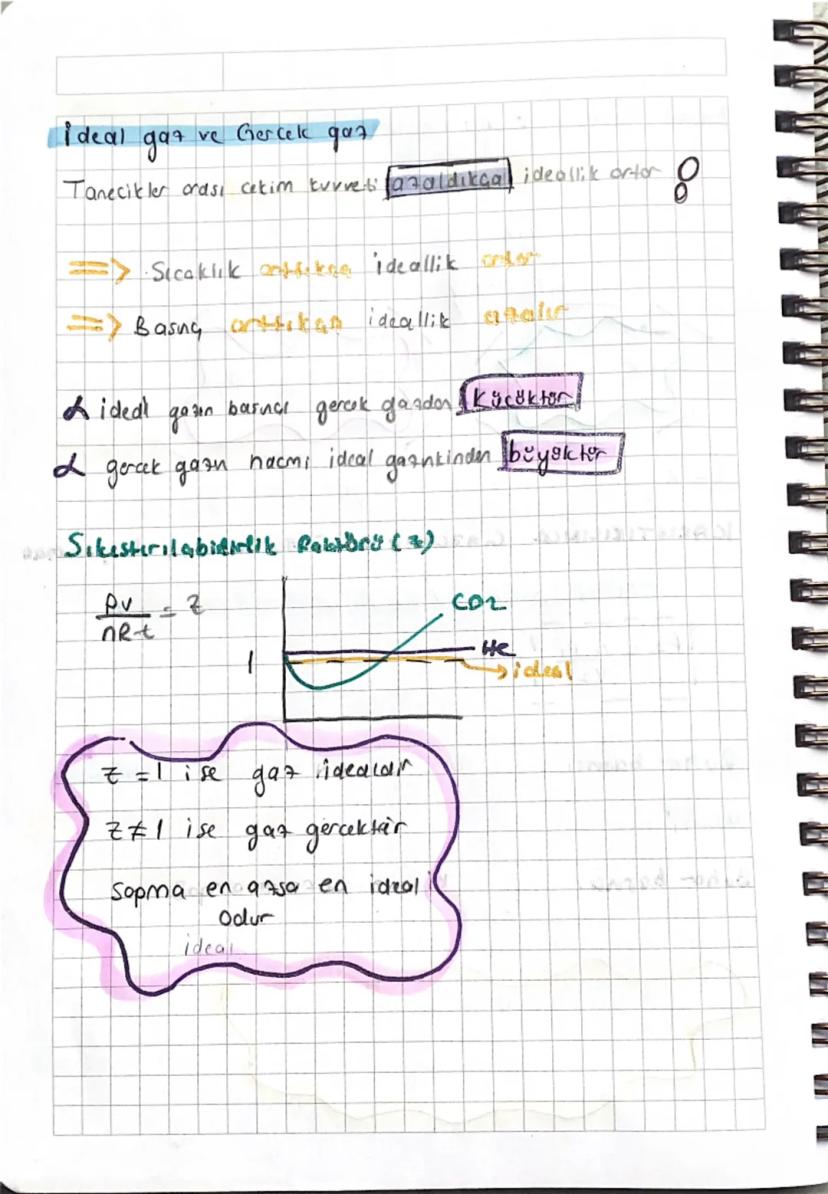 ideal gaz ve Gercek gaz
Tanecikler arası cekim kuvveti azaldıkça ideallik artar
=> Sıcaklık arttıkça ideallik artar
=> Basınç arttıkça ideallik azalır
ideal gazın basıncı gercek gazdan küçüktür
gercek gazın hacmi ideal gazınkinden büyüktür
Sıkıştırılabilirlik Faktörü (z)
PV/nRt = z
CO2
He
1
ideal
z = 1 ise gaz idealdir
z ≠ 1 ise gaz gercektir
Sapma en azsa en ideali
odur
ideal